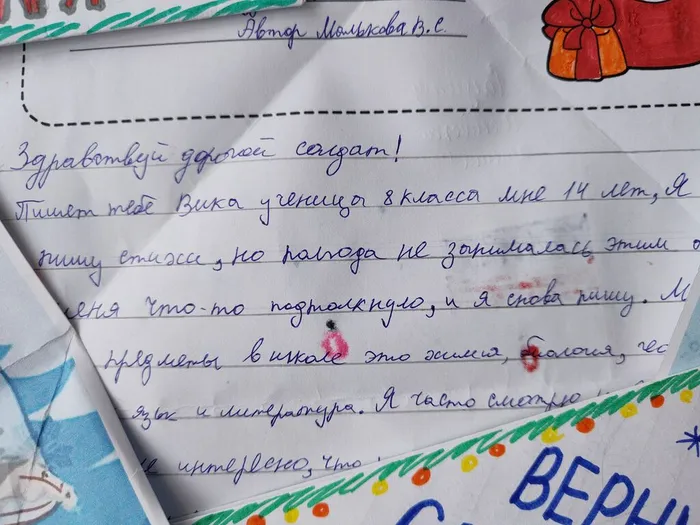 Автор Молькова В.С.
Здравствуй дорогой солдат!
Пишет тебе Вика ученица 8 класса мне 14 лет, Я
пишу стихи, но полгода не занималась этим
меня что-то подтолкнуло, и я снова пишу. М
предметы в школе это химия, биология, гео
язык и литература. Я часто смотрю
не интересно, что
ВЕРНИ